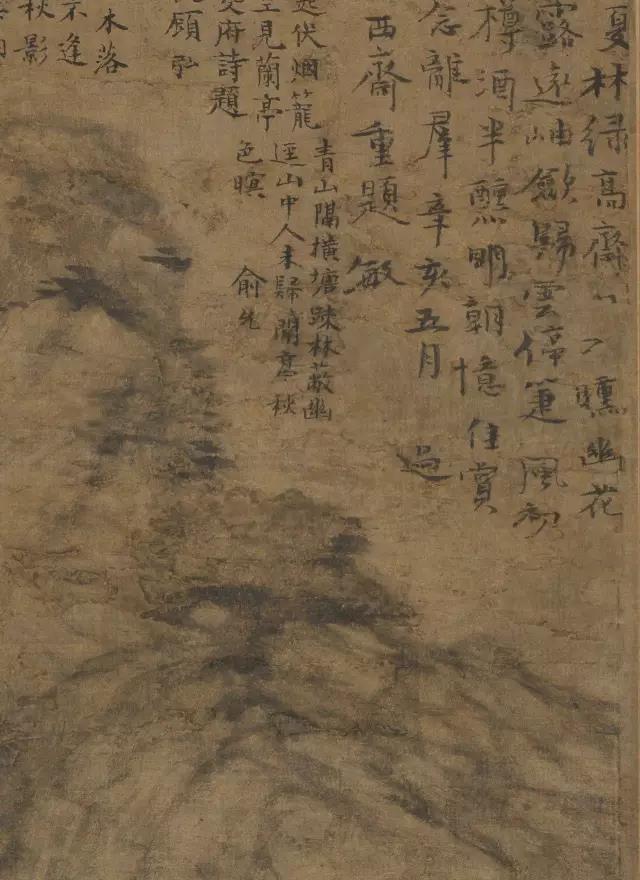 夏林绿高齋曛幽花
露遠岫斂歸雲停筆風初
樽酒半醺明朝憶佳賞
念離羣辛亥五月過
西齋重題敏
青山隔橫塘踈林蔽幽
逕山中人未歸閒亭秋
色暝 俞允
伏烟籠
見蘭亭
府詩題
顧
木落
不逢
秋影